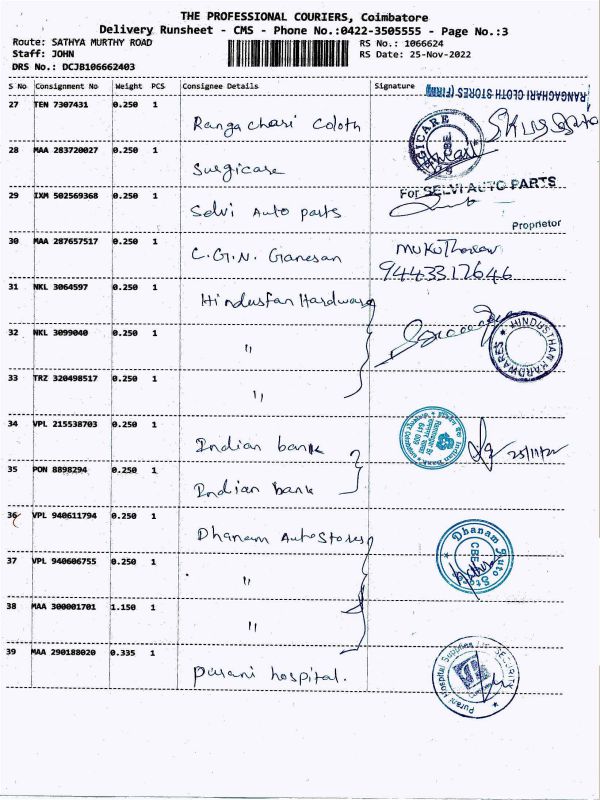 THE PROFESSIONAL COURIERS, Coimbatore
Delivery Runsheet - CMS - Phone No.:0422-3505555 - Page No.:3
Route: SATHYA MURTHY ROAD
Staff: JOHN
DRS No.: DCJB106662403
RS No.: 1066624
RS Date: 25-Nov-2022
S No Consignment No Weight PCS Consignee Details Signature
RANGACHARI CLOTH STORES (FIRM)
27 TEN 7307431 0.250 1 Ranga chari Coloth
28 MAA 283720027 0.250 1 Surgicare
GICARE
29 IXM 502569368 0.250 1 Selvi Auto parts
For SELVI AUTO PARTS
Proprietor
30 MAA 287657517 0.250 1 C.G.N. Ganesan
9443317646
31 NKL 3064597 0.250 1 Hindusfan Hardware
32 NKL 3099040 0.250 1 "
HINDUSTHAN HARDWARES
33 TRZ 320498517 0.250 1 "
34 VPL 215538703 0.250 1 Indian bank
25/11/22
35 PON 8898294 0.250 1 Indian bank
36 VPL 940611794 0.250 1 Dhanam Auto Stores
Dhanam Auto St
CBE
37 VPL 940606755 0.250 1 "
38 MAA 300001701 1.150 1 "
39 MAA 290188020 0.335 1 purani hospital.
Purani Hospital Supplies SECURITY